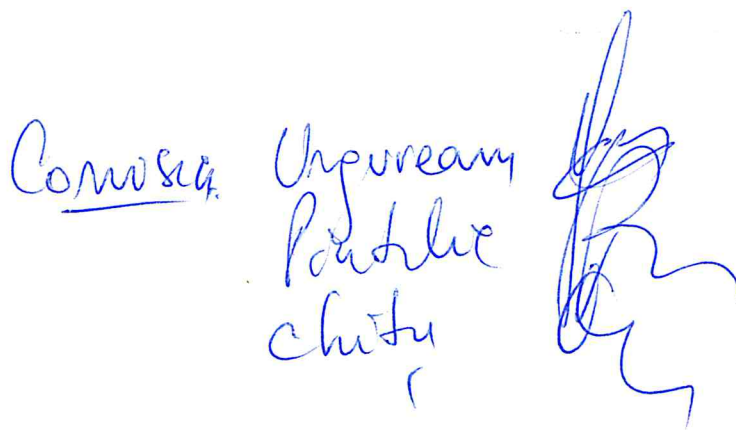 Comisia Ungureanu
Pantelie
Chițu